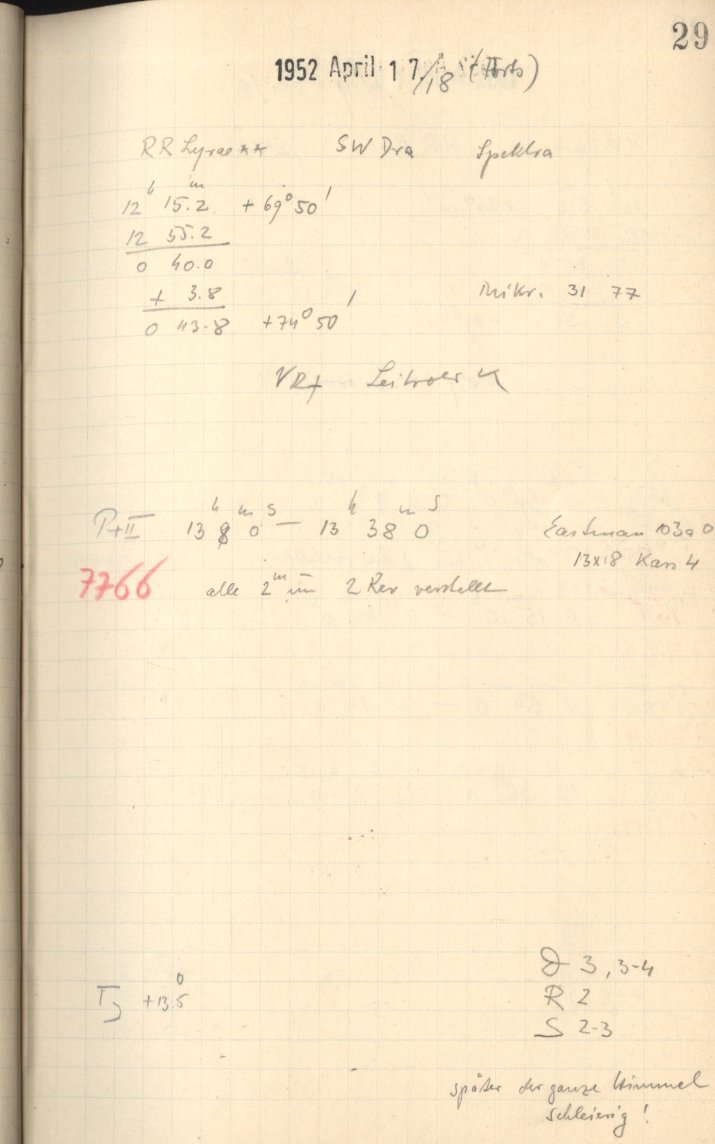 29
1952 April 17/18 (Forts)
RR Lyrae ** SW Dra Spektra
12 h 15.2 m +69° 50'
12 55.2
0 40.0
+ 3.8 Mikr. 31 77
0 43.8 +74° 50'
P+II 13 h 8 m 0 s — 13 h 38 m 0 s Eastman 103a O
13x18 Kass 4
7766 alle 2 m um 2 Rev verstellt
D 3, 3-4
+13°5 R 2
S 2-3
später der ganze Himmel
schleierig!